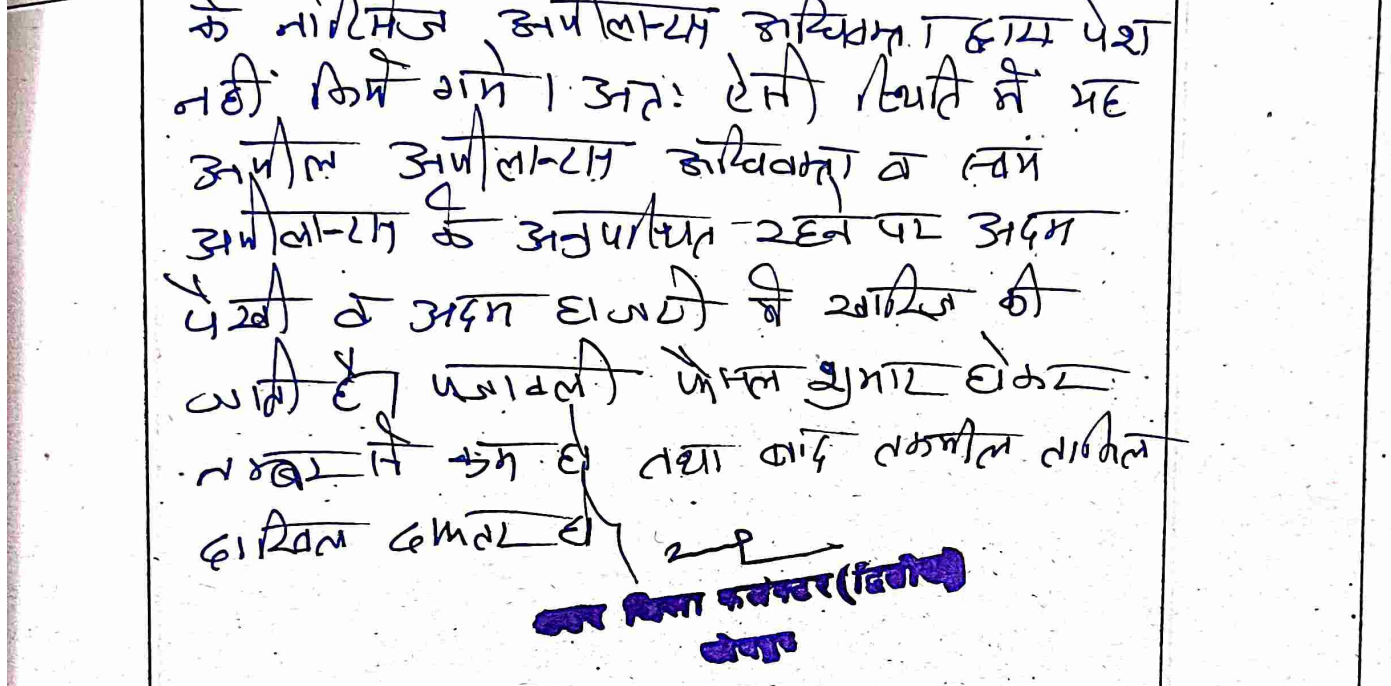 के नोटिसेज अपीलान्टस अधिवक्ता द्वारा पेश
नहीं किये गये । अतः ऐसी स्थिति में यह
अपील अपीलान्टस अधिवक्ता व स्वयं
अपीलान्टस के अनुपस्थित रहने पर अदम
पैरवी व अदम हाजरी में खारिज की
जाती है। पत्रावली फैसल शुमार होकर
नम्बर से कम हो तथा बाद तकमील तामिल
दाखिल दफ्तर हो
जिला कलेक्टर (द्वितीय)